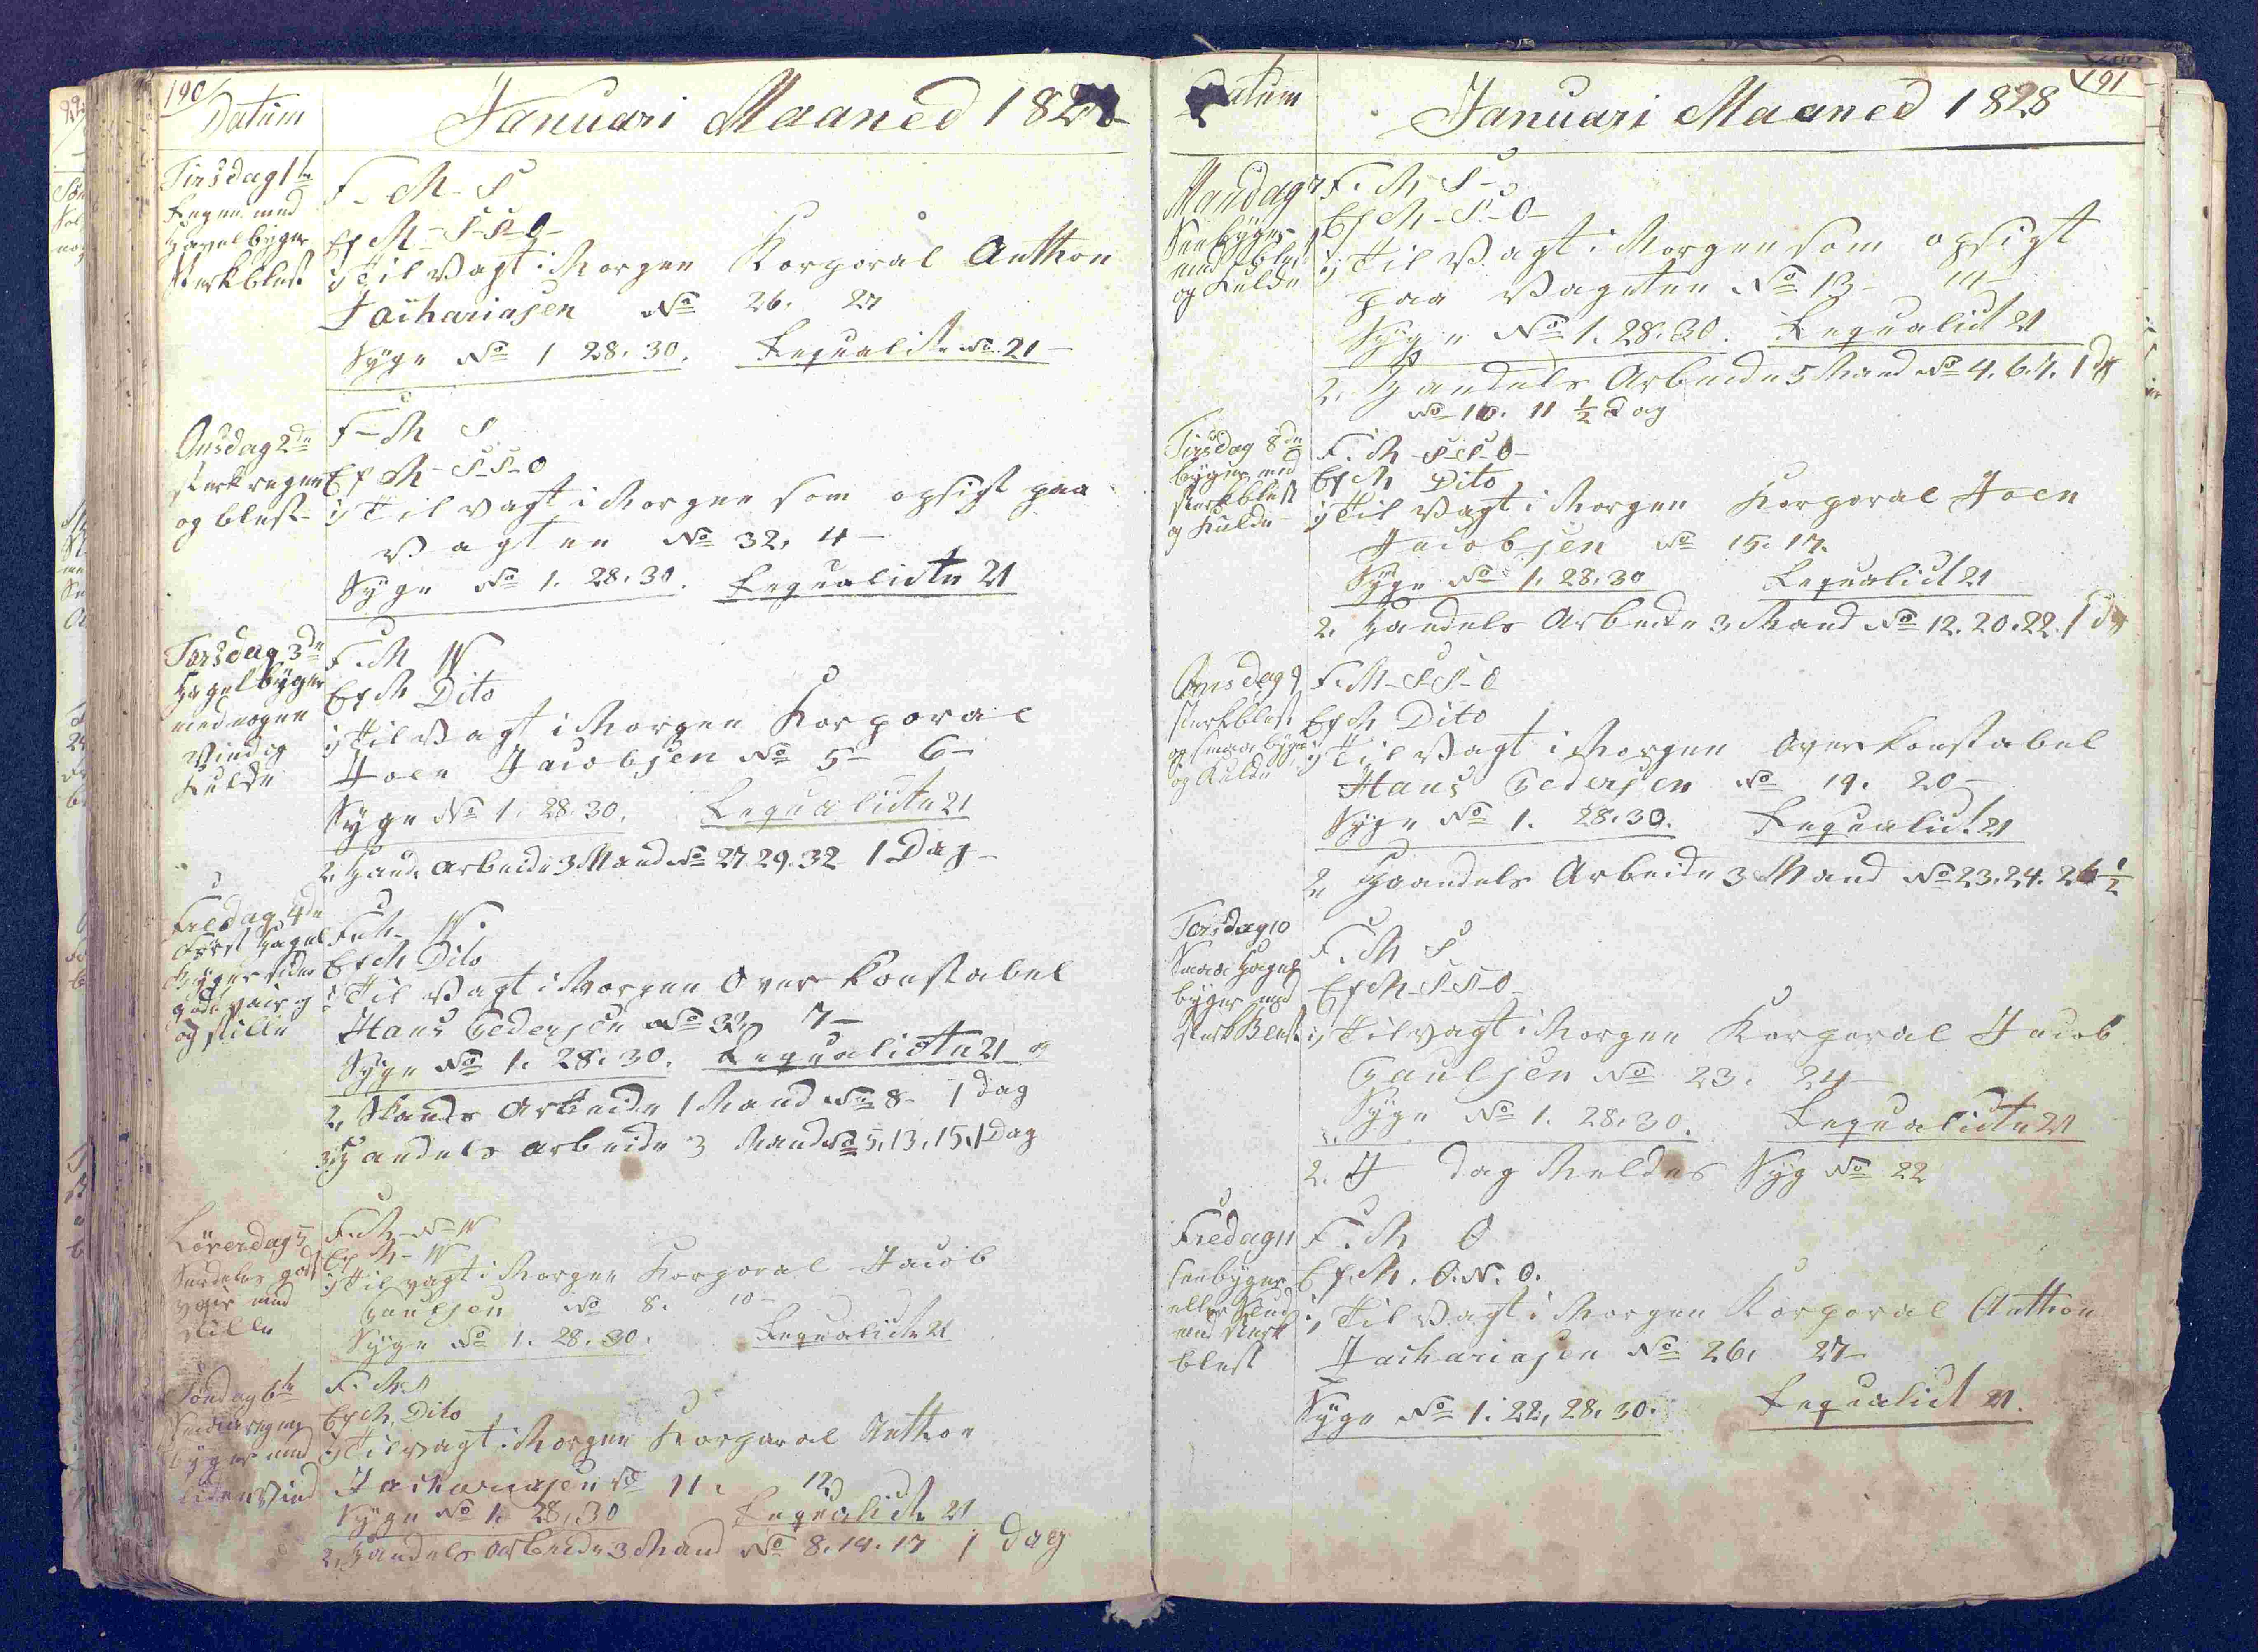 190
Datum
Januari Maaned 1828
Tirsdag 1te
Regen med
Havelbyger
sterk blest
F. M. S
Ef M - S-S-O -
1, Til Vagt i Morgen Korporal Anthon
Zachariasen No 26. 27
Syge No 1 28. 30. Lequalicte No 21 -
Onsdag 2de
sterk regen
og blest -
F - M S
Ef M - S-S-O
1, Til vagt i Morgen som opsigt paa
Vagten No 32, 4 -
Syge No 1. 28. 30. Lequalicte 21
Torsdag 3de
Hagelbyger
med nogen
Vind og
Kulde
F. M W
Ef M Dito
1, Til Vagt i Morgen Korporal
Joen Jacobsen No 5 - 6 -
Syge No 1. 28. 30. Lequalicte 21
2, Hand. Arbeide 3 Mand No 27 29. 32 1 Dag -
Fredag 4de
først Hagel
byger siden
godt vair
og stille
F M - W.
Ef M Dito
1, Til Vagt i Morgen Over konstabel
Hans Pedersen No 33, 7 -
Syge No 1. 28. 30. Lequalicte 21
2, Hands Arbeide 1 Mand No 8 - 1 dag
3, Handels arbeide 3 Mand No 5, 13, 15, 1 Dag
Löverdag 5
godt
vair med
stille
F. M - N - W
Ef M - W
1, Til vagt i Morgen Korporal Jacob
Paulsen No 8. 10 -
Syge No 1. 28. 30. Lequalicte 21
Söndag 6te
byger med
liden Vind
F. M. S
Ef M, Dito
1, Til vagt i Morgen Korporal Anthon
Zachariasen No 11. 12,
Syge No 1. 28, 30 Lequalicte 21
2, Handels Arbeide 3 Mand No 8. 14. 17 1 dag
191
Datum
Januari Maaned 1828
Mandag 7
Snee byger
med blest
og Kulde
F. M S -
Ef M - S - O -
1, Til Vagt i Morgen som opsigt
paa Vagten No 13 - 14 -
Syge No 1. 28. 30. Lequalict 21
2, Handels Arbeide 5 Mand No 4. 6. 7. 1 dg
No 10. 11 ½ dag
Tirsdag 8de
byger med
sterk blest
og Kulde -
F. M - S-S-O -
Ef M Dito
1, Til Vagt i Morgen Korporal Joen
Jacobsen No 15. 17.
Syge No 1. 28. 30 Lequalict 21
2, Handels Arbeide 3 Mand No 12. 20. 22. 1 dg
Onsdag 9
sterk blest
og smaa byger
og Kulde
F. M - S S - O
Ef M Dito
1, Til Vagt i Morgen Overkonstabel
Hans Pedersen No 19. 20 -
Syge No 1. 28. 30. Lequalict 21
2, Handels Arbeide 3 Mand No 23. 24. 26 ½
Torsdag 10
Smaa Hagel
byger med
sterk Blest
F. M S
Ef M - S-S-O -
1, Til vagt i Morgen Korporal Jacob
Paulsen No 23. 24 -
Syge No 1. 28. 30. Lequalicte 21
2. I dag Meldes Syg No 22
Fredag 11
snebyger
eller Slud
med sterk
blest
F. M O
Ef. M. O. N. O.
1, Til Vagt i Morgen Korporal Anthon
Zachariasen No 26. 27 -
Syge No 1. 22, 28. 30. Lequalict 21.